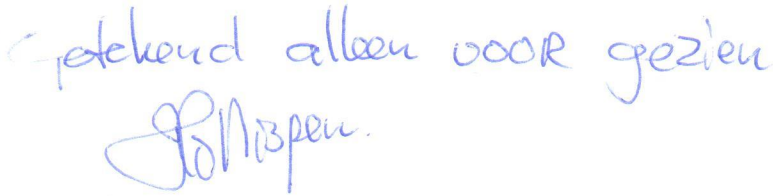 Getekend alleen VOOR gezien